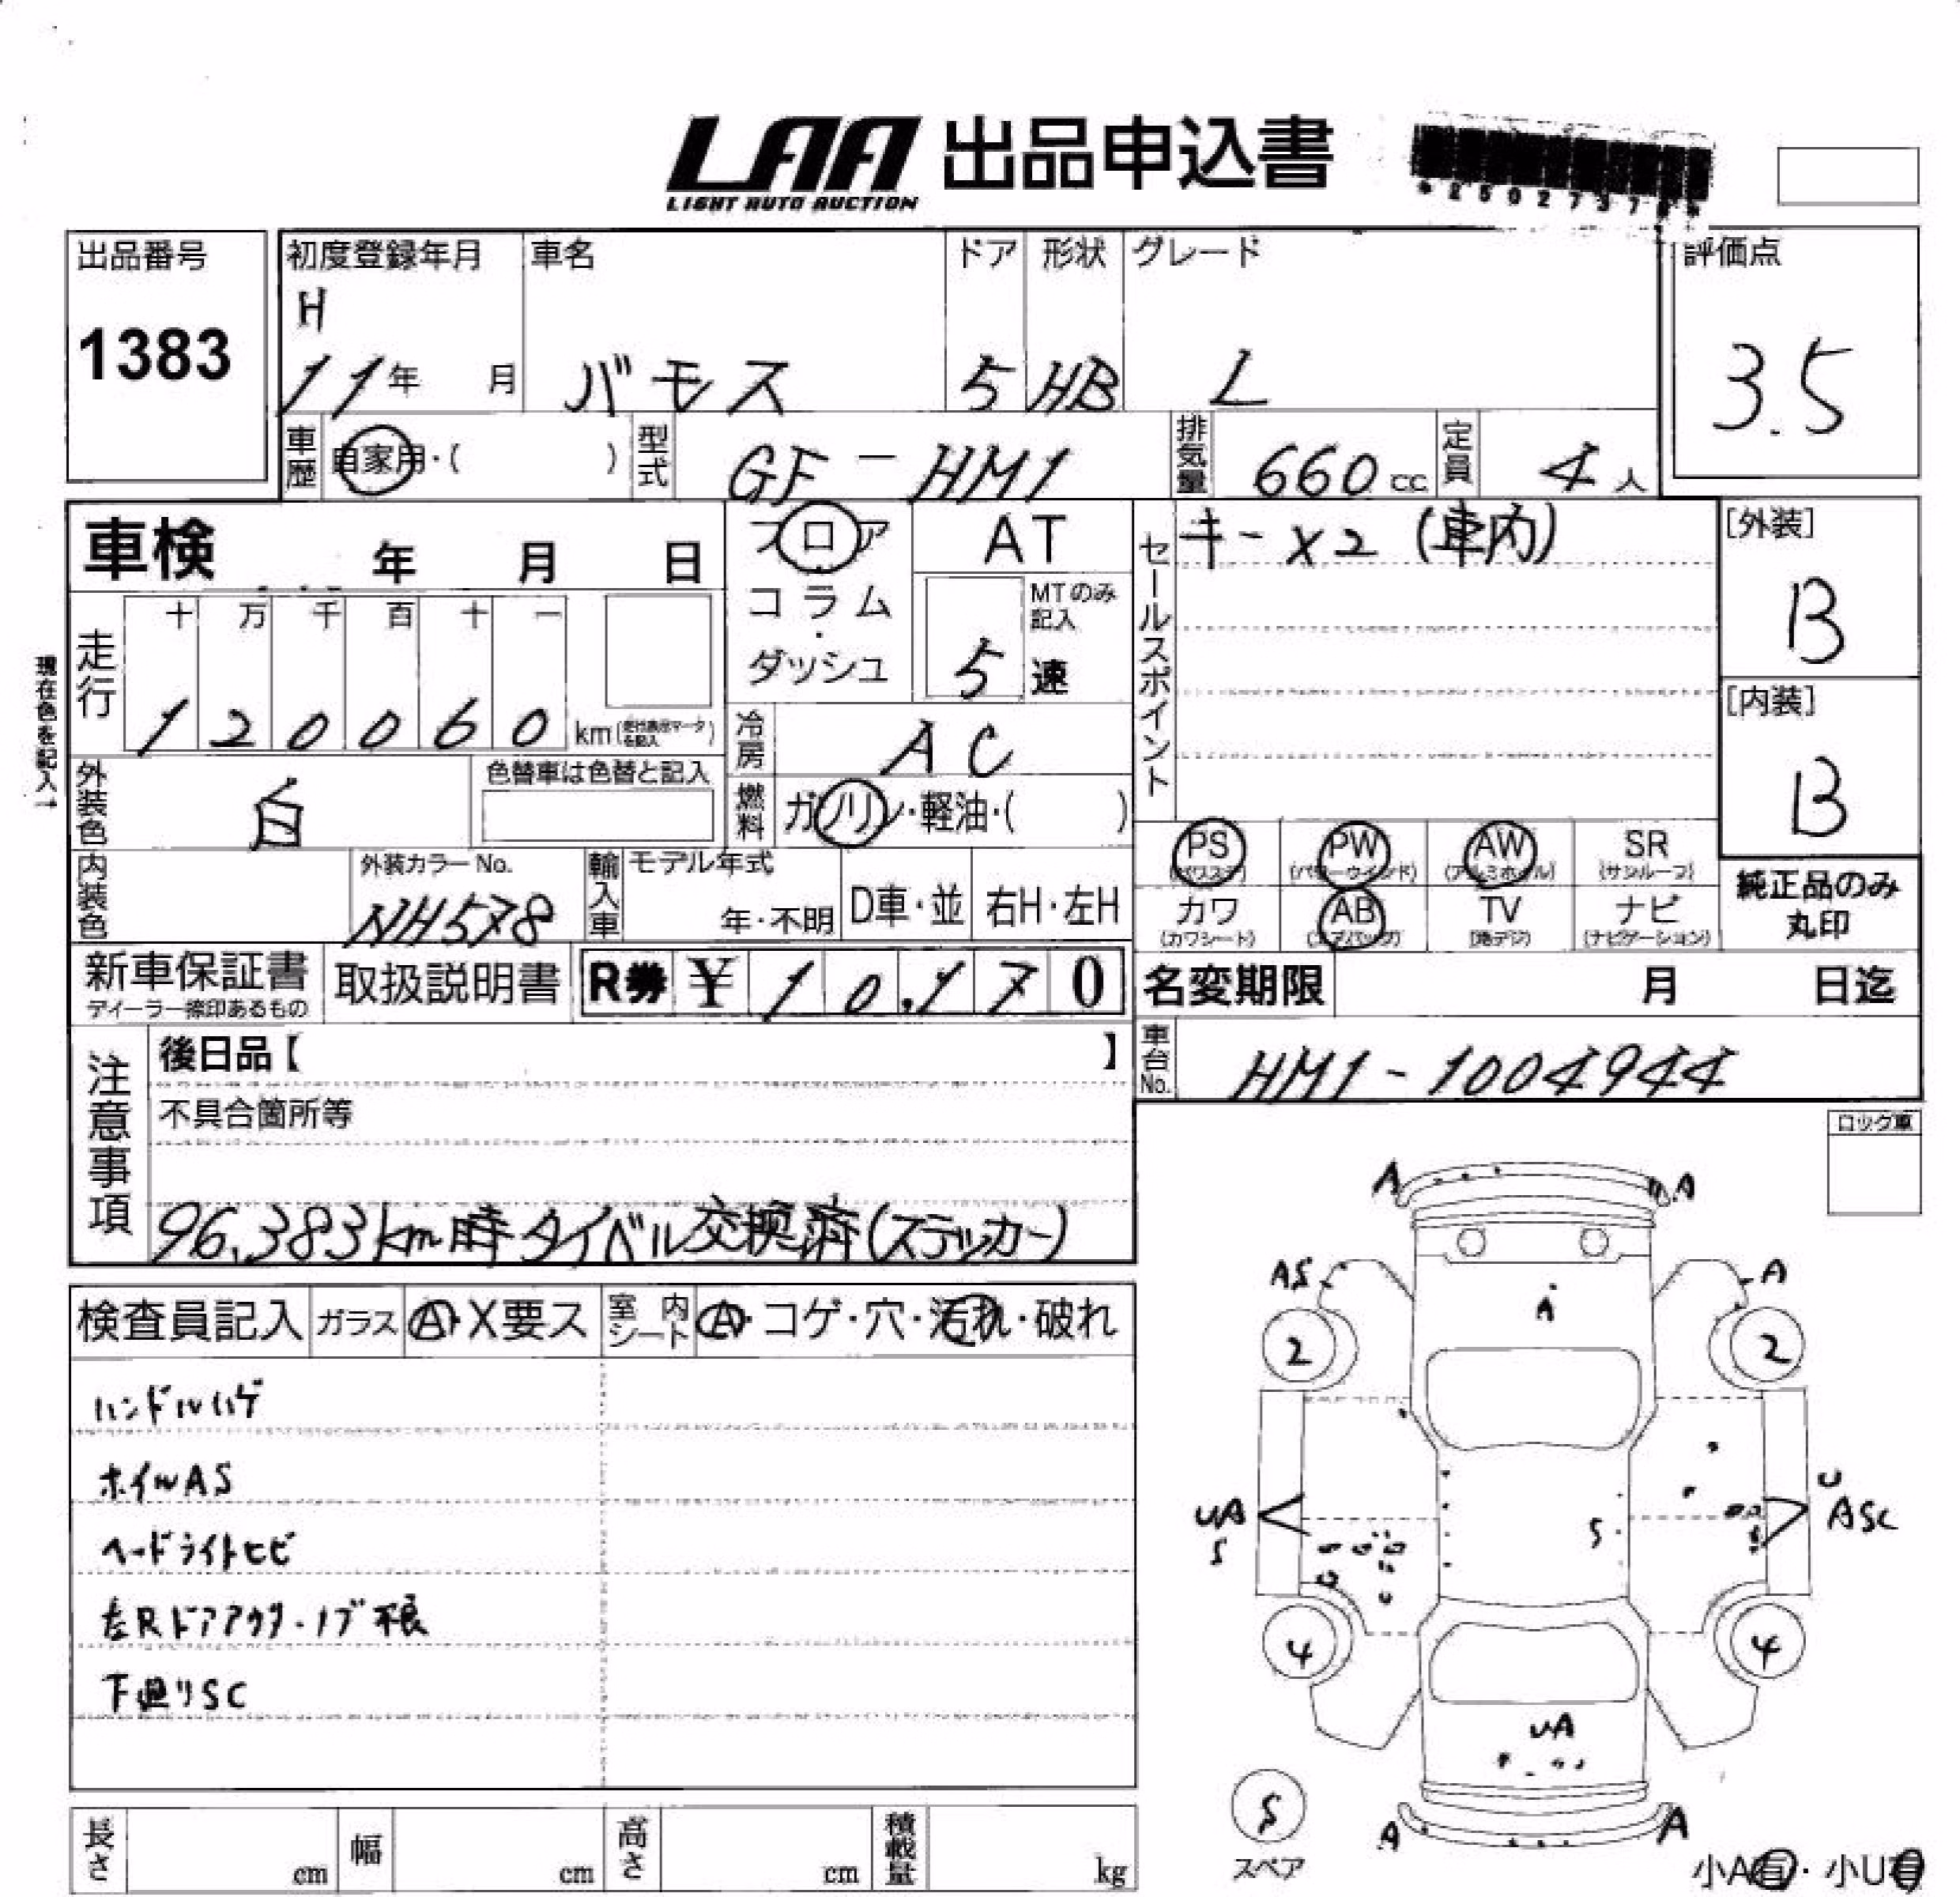 LAA 出品申込書
LIGHT AUTO AUCTION
出品番号
1383
初度登録年月
H
11年 月
車名
バモス
ドア
5
形状
HB
グレード
L
評価点
3.5
車歴
自家用・( )
型式
GF-HM1
排気量
660 cc
定員
4 人
車検 年 月 日
走行
十 万 千 百 十 一
1 2 0 0 6 0 km
現在色を記入
フロア
コラム
・
ダッシュ
AT
MTのみ
記入
5 速
セールスポイント
キー×2 (車内)
[外装]
B
[内装]
B
外装色
白
色替車は色替と記入
冷房
AC
燃料
ガソリン・軽油・( )
PS
(パワステ)
PW
(パワーウインド)
AW
(アルミホイル)
SR
(サンルーフ)
カワ
(カワシート)
AB
(エアバッグ)
TV
(地デジ)
ナビ
(ナビゲーション)
純正品のみ
丸印
内装色
外装カラーNo.
NH578
輸入車
モデル年式
年・不明
D車・並
右H・左H
新車保証書
ディーラー捺印あるもの
取扱説明書
R券 ¥ 1 0,1 7 0
名変期限 月 日迄
車台No.
HM1-1004944
注意事項
後日品【 】
不具合箇所等
96,383km時タイベル交換済(ステッカー)
ロック車
検査員記入
ガラス
A・X要ス
室内
シート
A・コゲ・穴・汚れ・破れ
ハンドルハゲ
ホイルAS
ヘードライトヒビ
左Rドアアウター・ノブ不良
下廻りSC
A A
AS A
A
2 2
U
UA ASC
S
S
4 4
UA
S
スペア
A A
小A有・小U有
長さ cm
幅 cm
高さ cm
積載量 kg